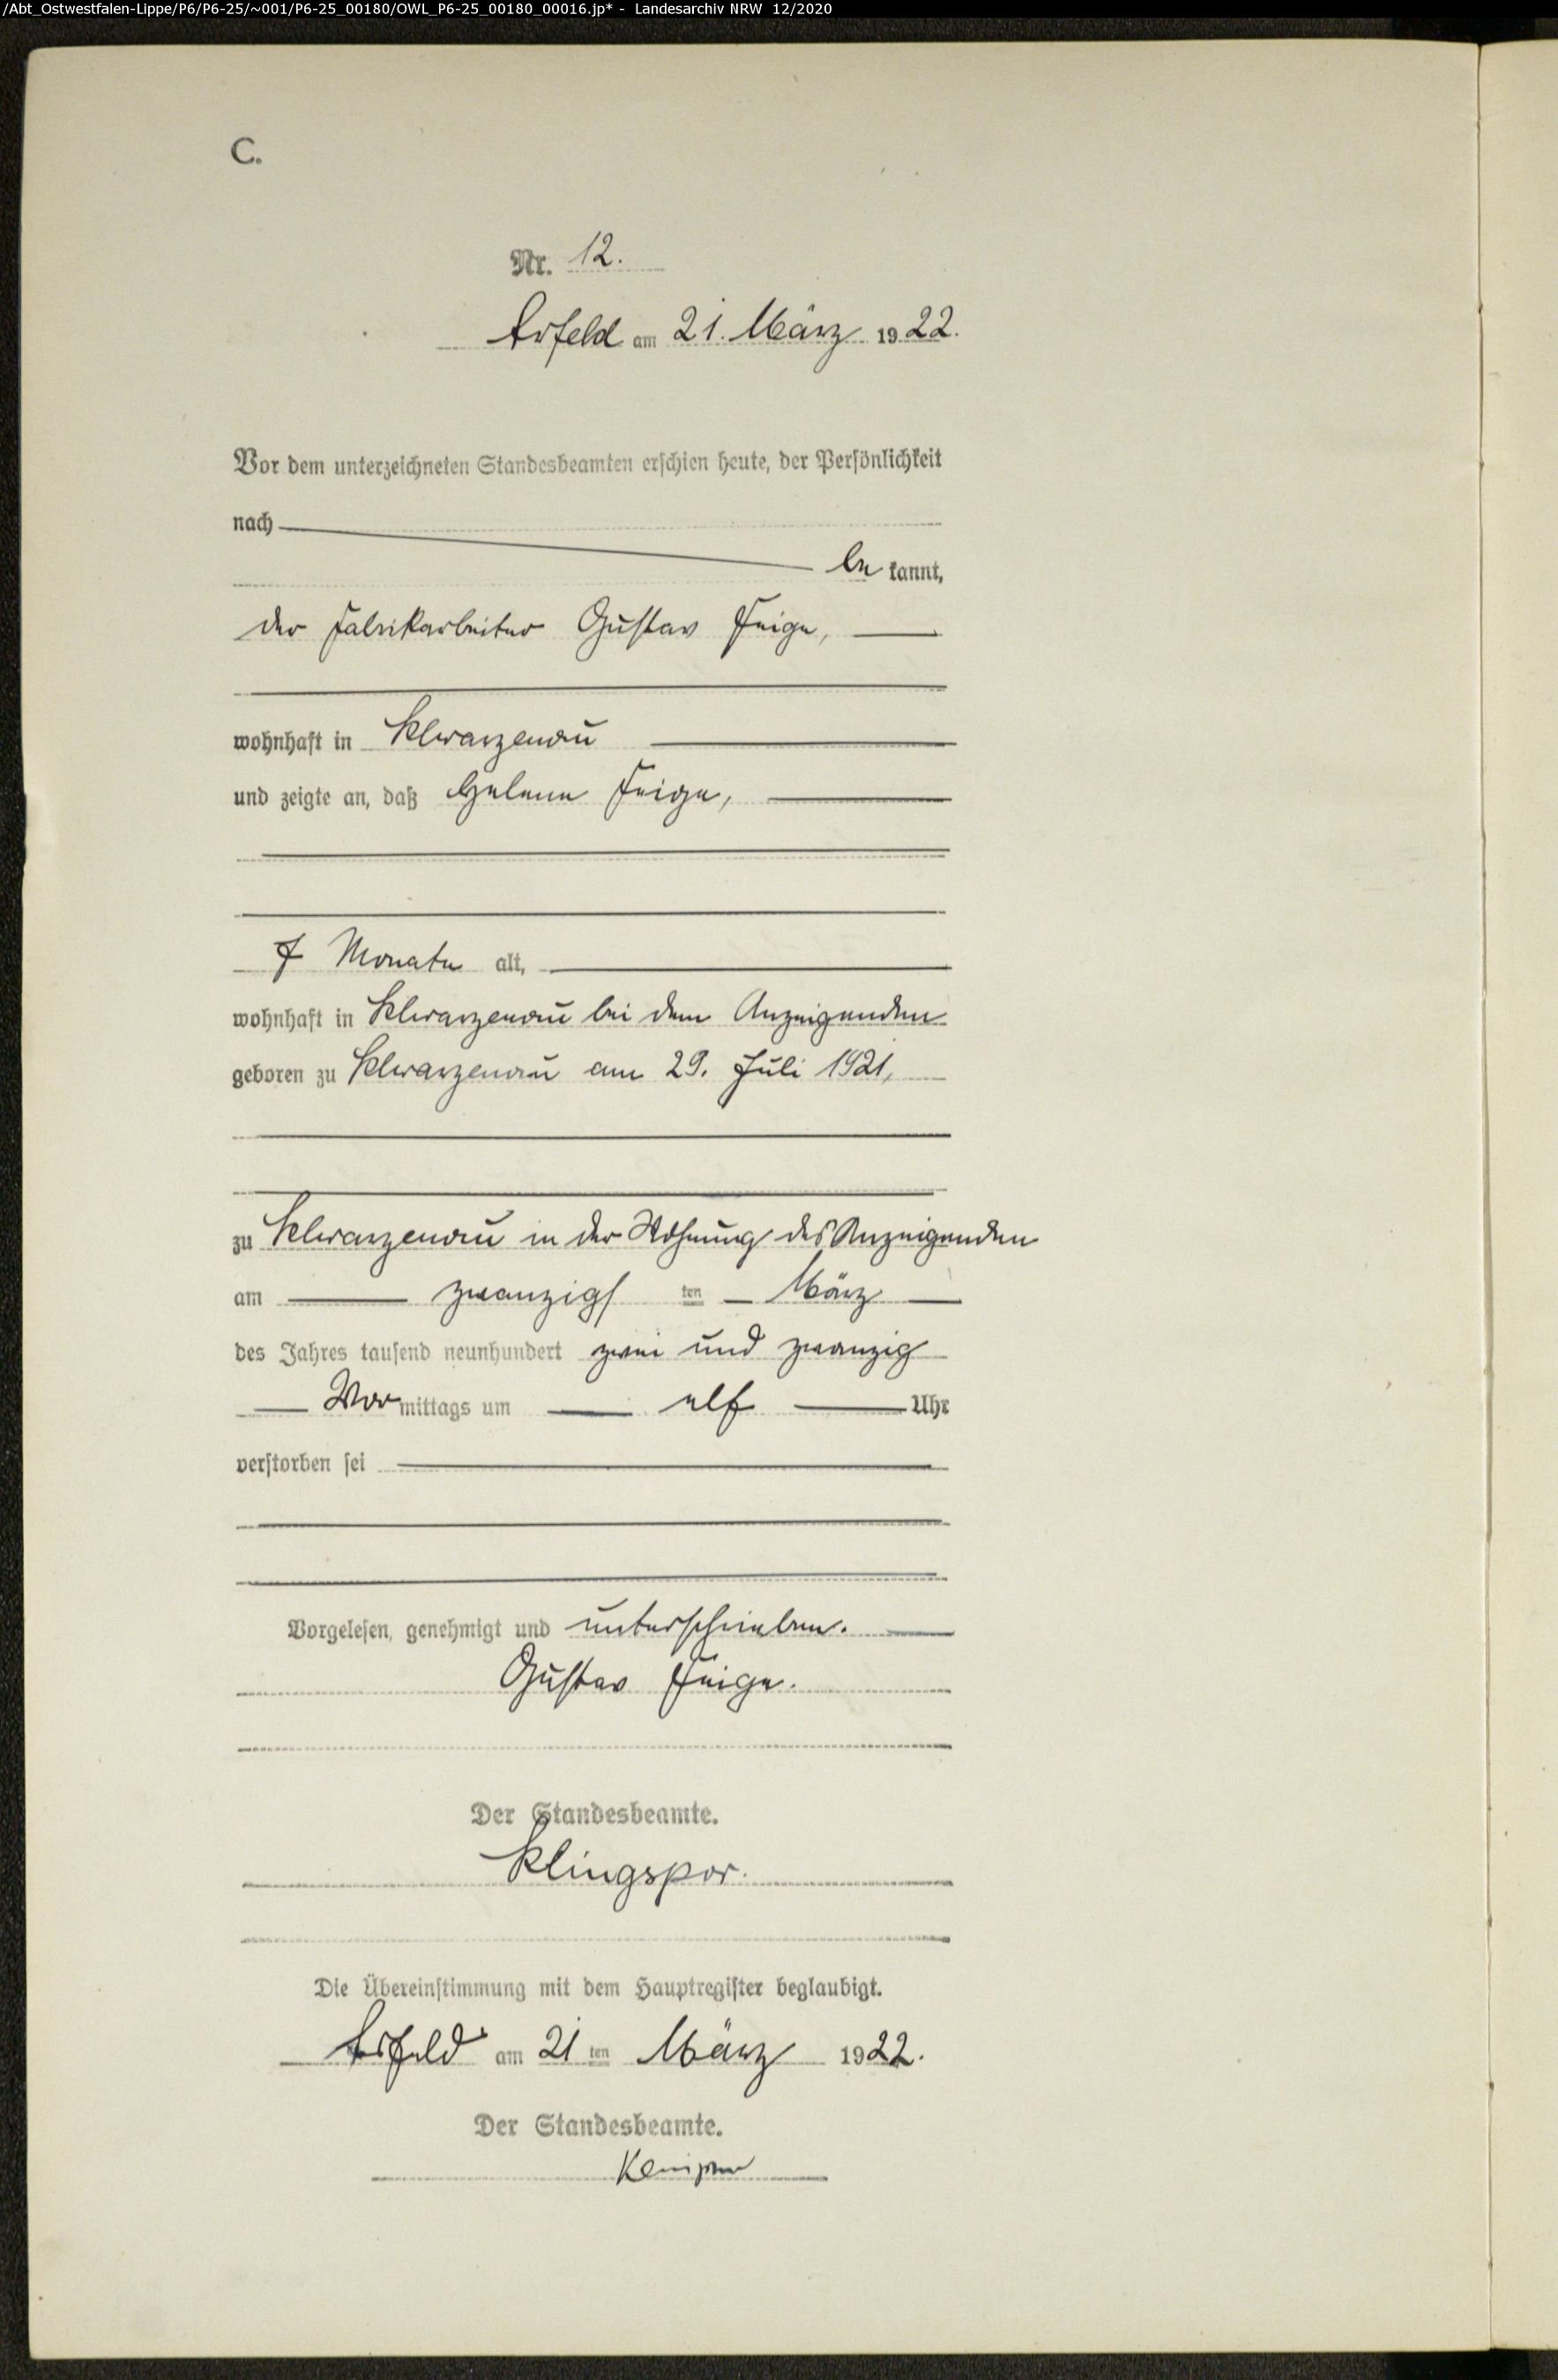 /Abt_Ostwestfalen-Lippe/P6/P6-25/~001/P6-25_00180/OWL_P6-25_00180_00016.jp* - Landesarchiv NRW 12/2020
C.
Nr. 12.
Arfeld am 21. März 1922.
Vor dem unterzeichneten Standesbeamten erschien heute, der Persönlichkeit
nach
be kannt,
der Fabrikarbeiter Gustav Feige,
wohnhaft in Schwarzenau
und zeigte an, daß Helene Feige,
7 Monate alt,
wohnhaft in Schwarzenau bei dem Anzeigenden
geboren zu Schwarzenau am 29. Juli 1921,
zu Schwarzenau in der Wohnung des Anzeigenden
am zwanzigs ten März
des Jahres tausend neunhundert zwei und zwanzig
Vor mittags um elf Uhr
verstorben sei
Vorgelesen, genehmigt und unterschrieben.
Gustav Feige.
Der Standesbeamte.
Klingspor.
Die Übereinstimmung mit dem Hauptregister beglaubigt.
Arfeld am 21 ten März 1922.
Der Standesbeamte.